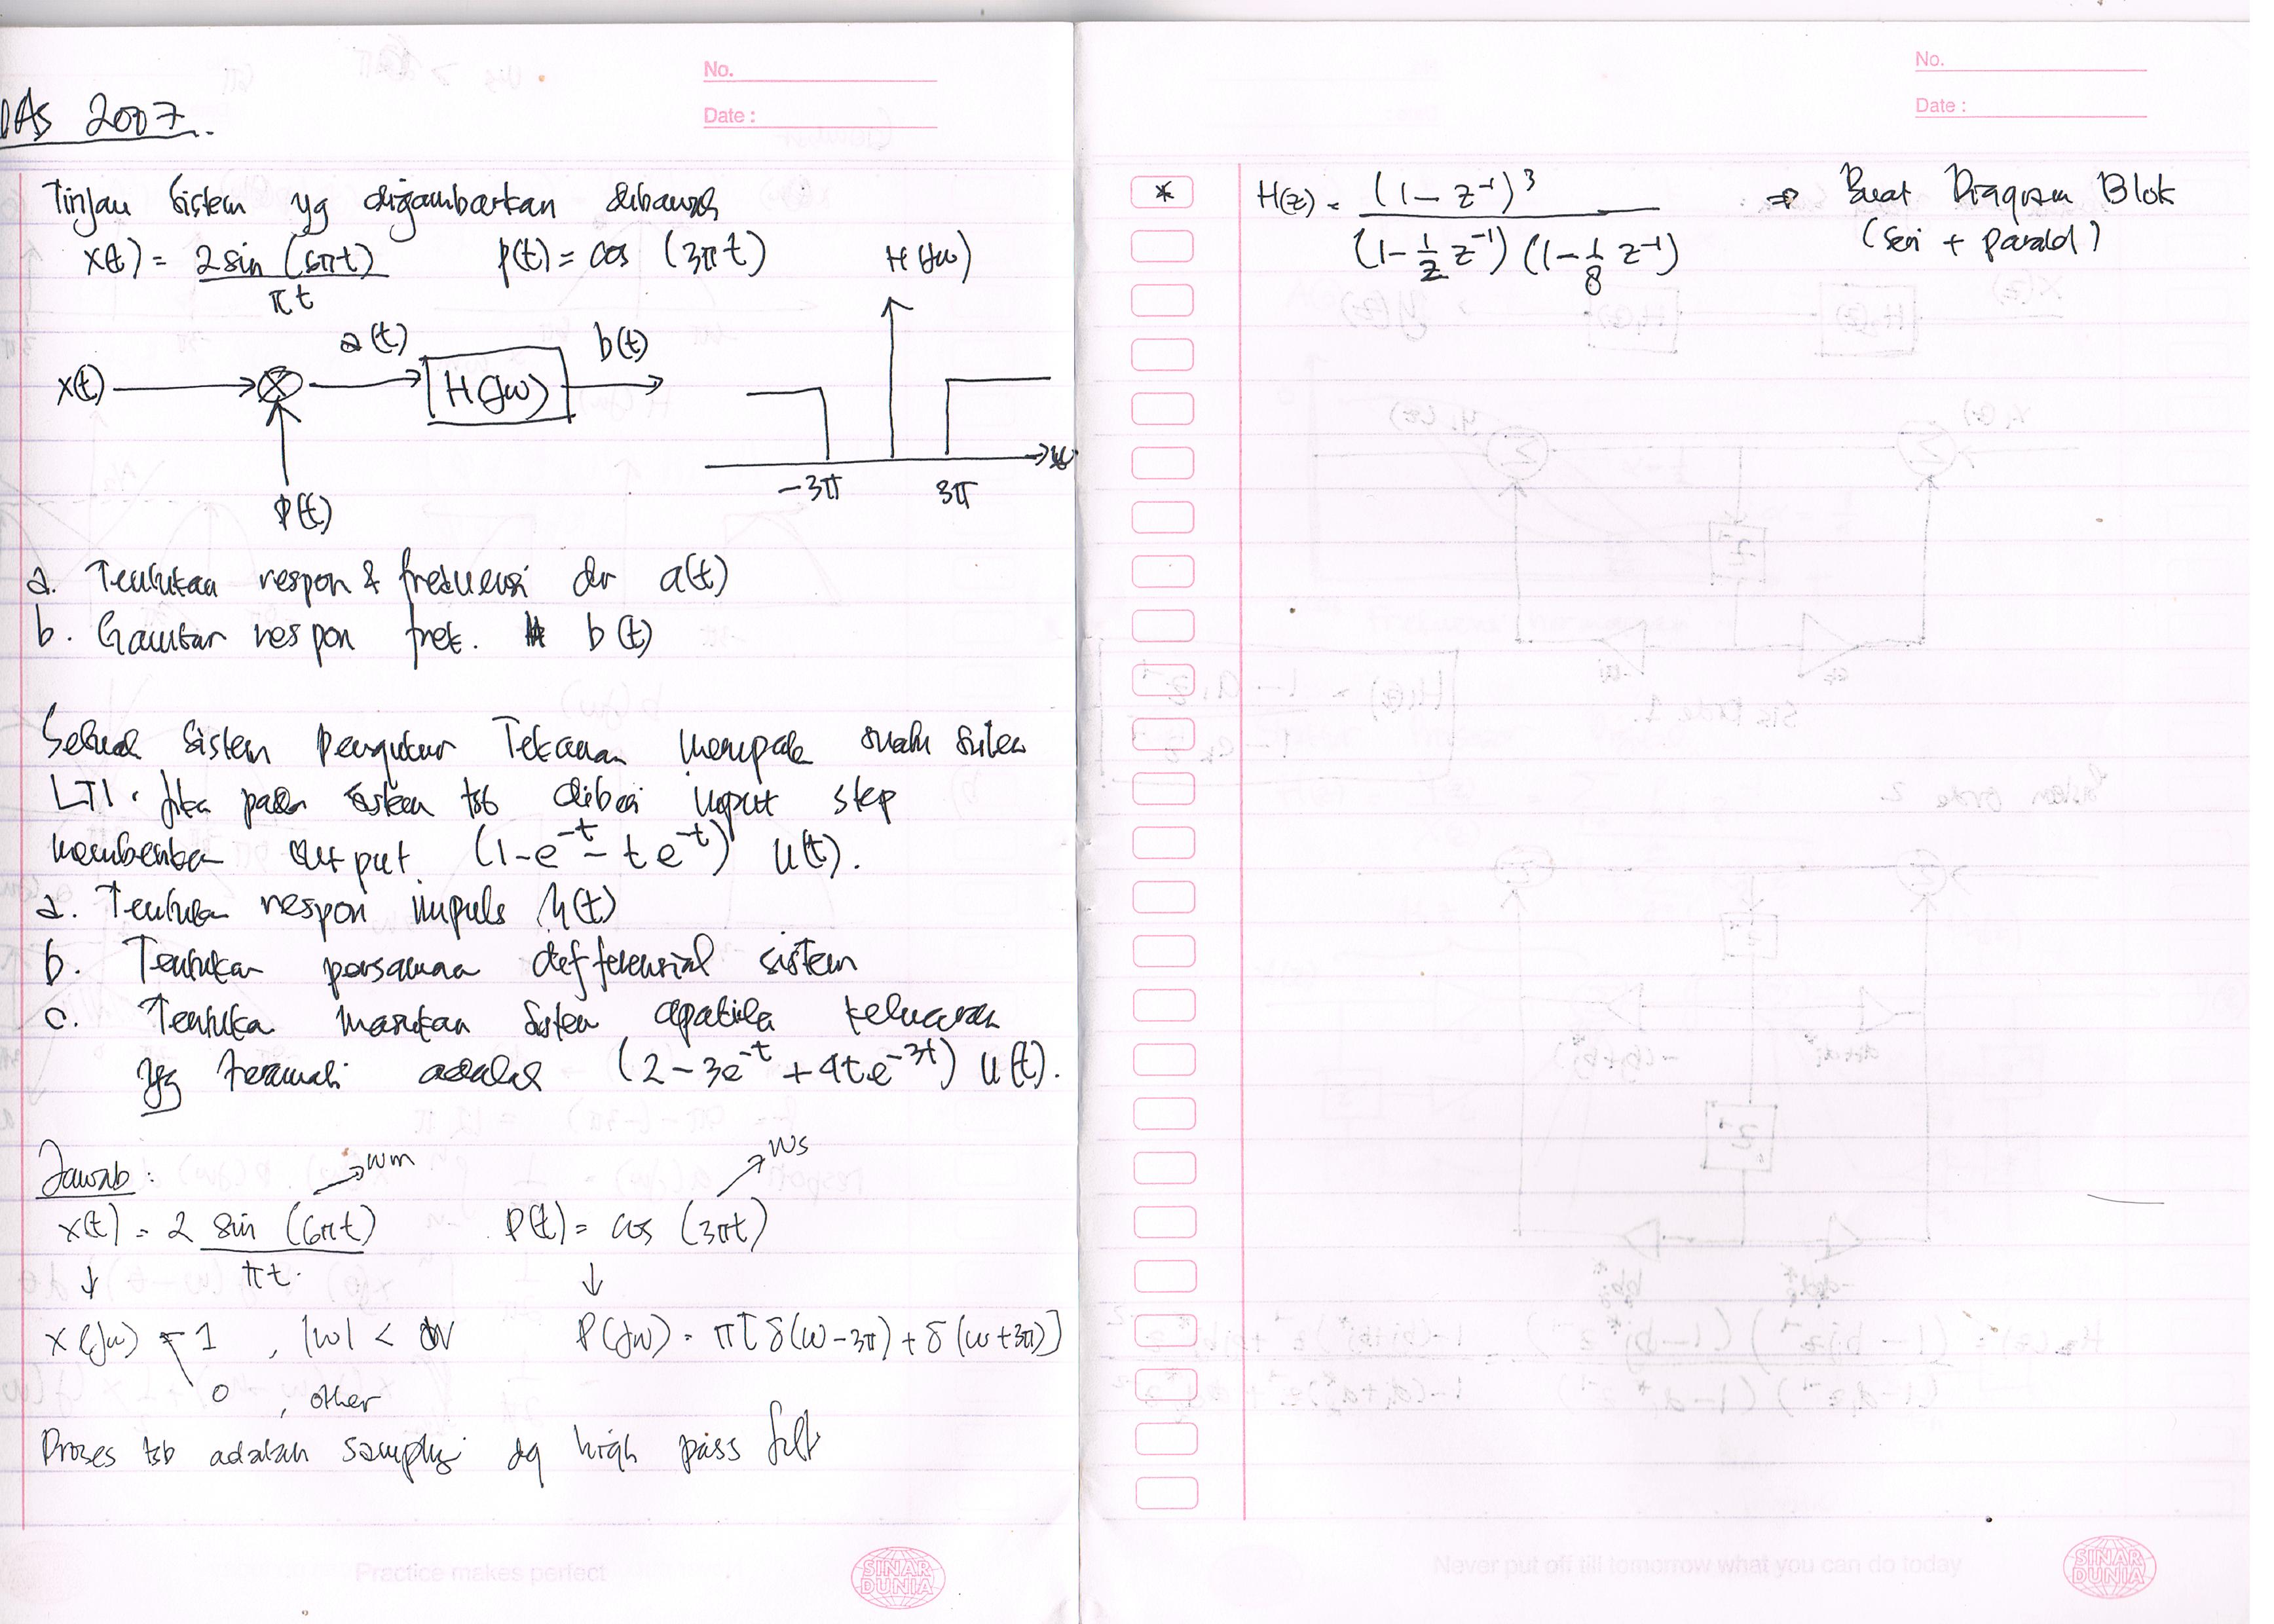 UAS 2007.
No.
Date :
Tinjau Sistem yg digambarkan dibawah
x(t) = 2 sin (6πt) / πt    p(t) = cos (3πt)    H(jω)
x(t)    a(t)    H(jω)    b(t)
p(t)
-3π    3π    ω
a. Tentukan respon frekuensi dr a(t)
b. Gambar respon frek. b(t)
Sebuah Sistem Pengukur Tekanan merupak suatu sistem
LTI. Jika pada sistem tsb diberi input step
memberikan output (1-e^-t - te^-t) u(t).
a. Tentukan respon impuls h(t)
b. Tentukan persamaan defferensial sistem
c. Tentuka masukan sistem apabila keluaran
yg teramati adalah (2-3e^-t + 4te^-3t) u(t).
Jawab :
x(t) = 2 sin (6πt) / πt.    → ωm    p(t) = cos (3πt)    → ωs
↓    ↓
x(jω) = 1 , |ω| < W    P(jω) = π[δ(ω-3π) + δ(ω+3π)]
0 , other
Proses tsb adalah sampling dg high pass filt
Practice makes perfect
SINAR DUNIA
No.
Date :
* H(z) = (1 - z^-1)^3 / (1 - 1/2 z^-1) (1 - 1/8 z^-1)    ⇒ Buat Diagram Blok
(seri + paralel)
Never put off till tomorrow what you can do today
SINAR DUNIA